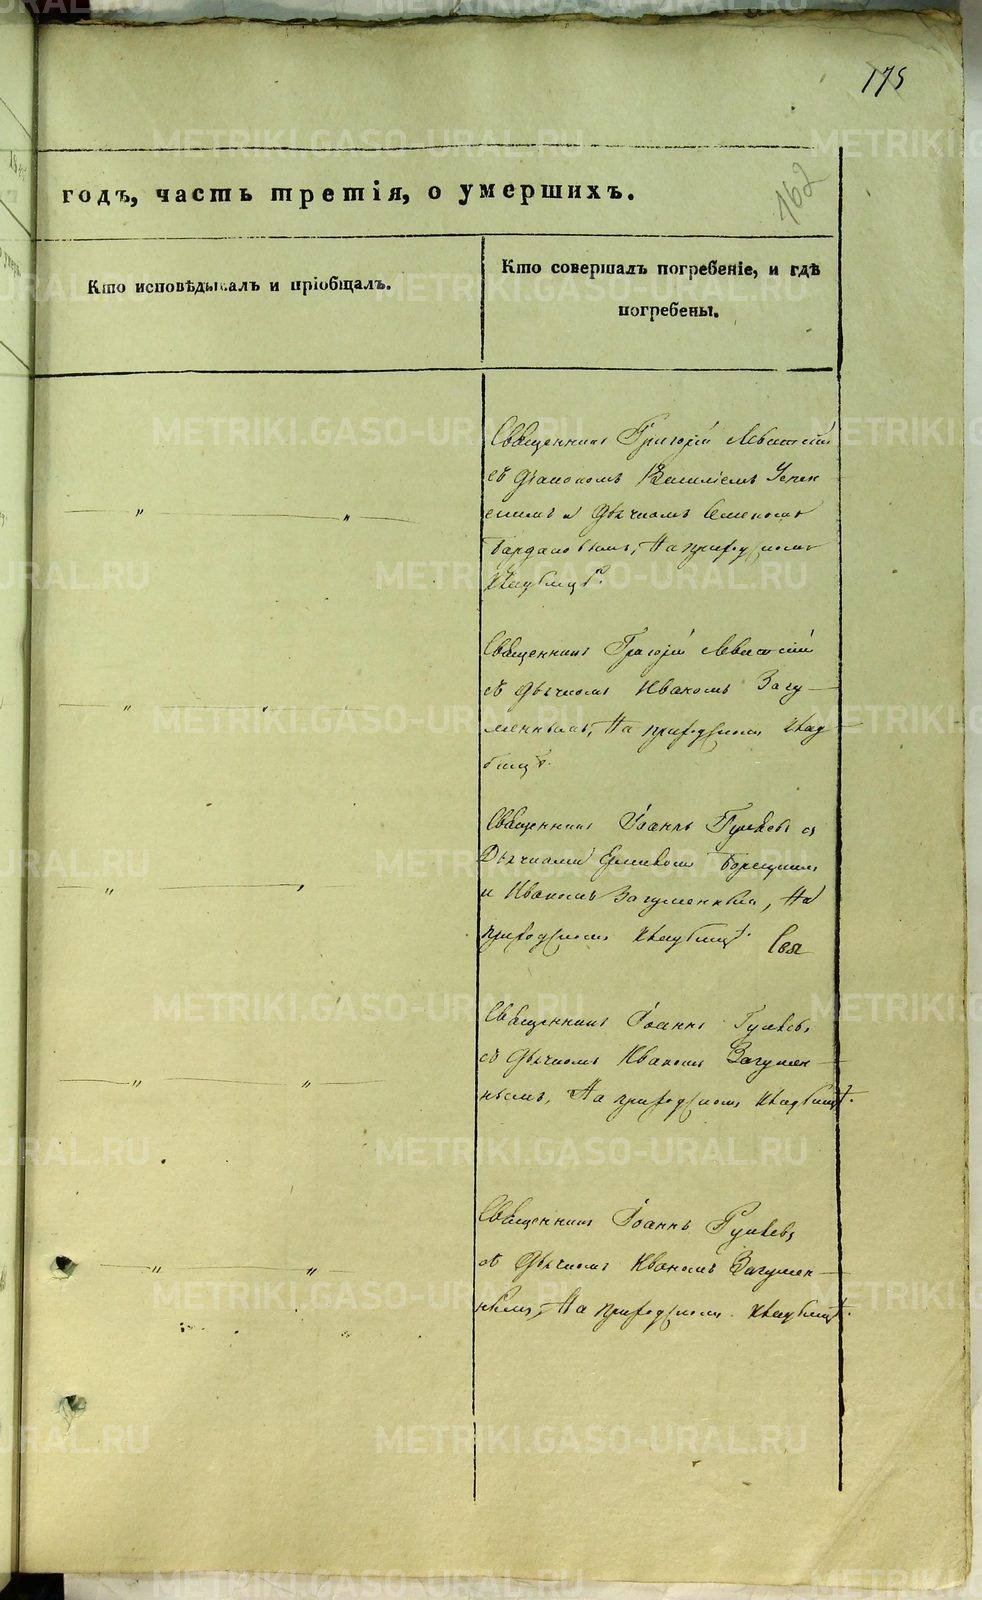 175
162
годъ, часть третія, о умершихъ.
Кто исповѣдывалъ и пріобщалъ.
Кто совершалъ погребеніе, и гдѣ
погребены.
Священникъ Григорій Левитскій
съ Діакономъ Василіемъ Успен
скимъ и Дьячкомъ Семеномъ
на приходскомъ
кладбищѣ.
Священникъ Григорій Левитскій
съ Дьячкомъ Иваномъ Загу-
меннымъ, на приходскомъ клад
бищѣ.
Священникъ Іоаннъ съ
Дьячками
и Иваномъ Загуменнымъ, на
приходскомъ кладбищѣ. Свя
Священникъ Іоаннъ
съ Дьячкомъ Иваномъ Загумен-
нымъ, на приходскомъ кладбищѣ.
Священникъ Іоаннъ
съ Дьячкомъ Иваномъ Загумен-
нымъ, на приходскомъ кладбищѣ.
METRIKI.GASO-URAL.RU